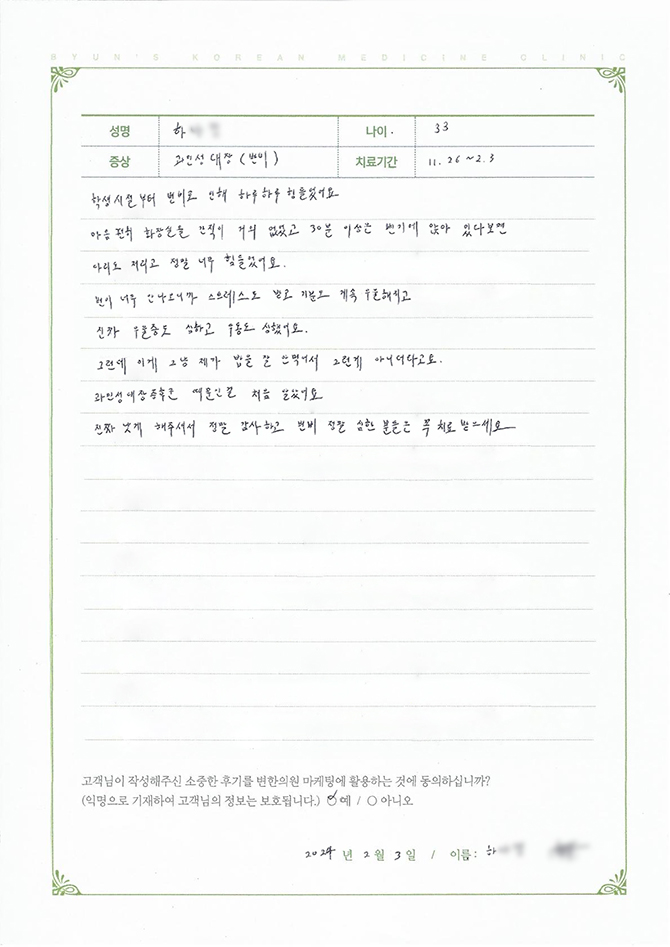 BYUN'S KOREAN MEDICINE CLINIC
성명 하 나이 33
증상 과민성 대장 (변비) 치료기간 11. 26 ~ 2. 3
학생시절부터 변비로 인해 하루하루 힘들었어요
마음 편히 화장실을 간적이 거의 없었고 30분 이상은 변기에 앉아 있다보면
다리도 저리고 정말 너무 힘들었어요.
변이 너무 안나오니까 스트레스도 받고 기분도 계속 우울해지고
진짜 우울증도 심하고 우울도 심했어요.
그런데 이게 그냥 제가 밥을 잘 안먹어서 그런게 아니더라고요.
과민성대장증후군 때문인걸 처음 알았어요
진짜 낫게 해주셔서 정말 감사하고 변비 정말 심한 분들은 꼭 치료 받으세요
고객님이 작성해주신 소중한 후기를 변한의원 마케팅에 활용하는 것에 동의하십니까?
(익명으로 기재하여 고객님의 정보는 보호됩니다.) ○ 예 / ○ 아니오
2024 년 2 월 3 일 / 이름 : 하